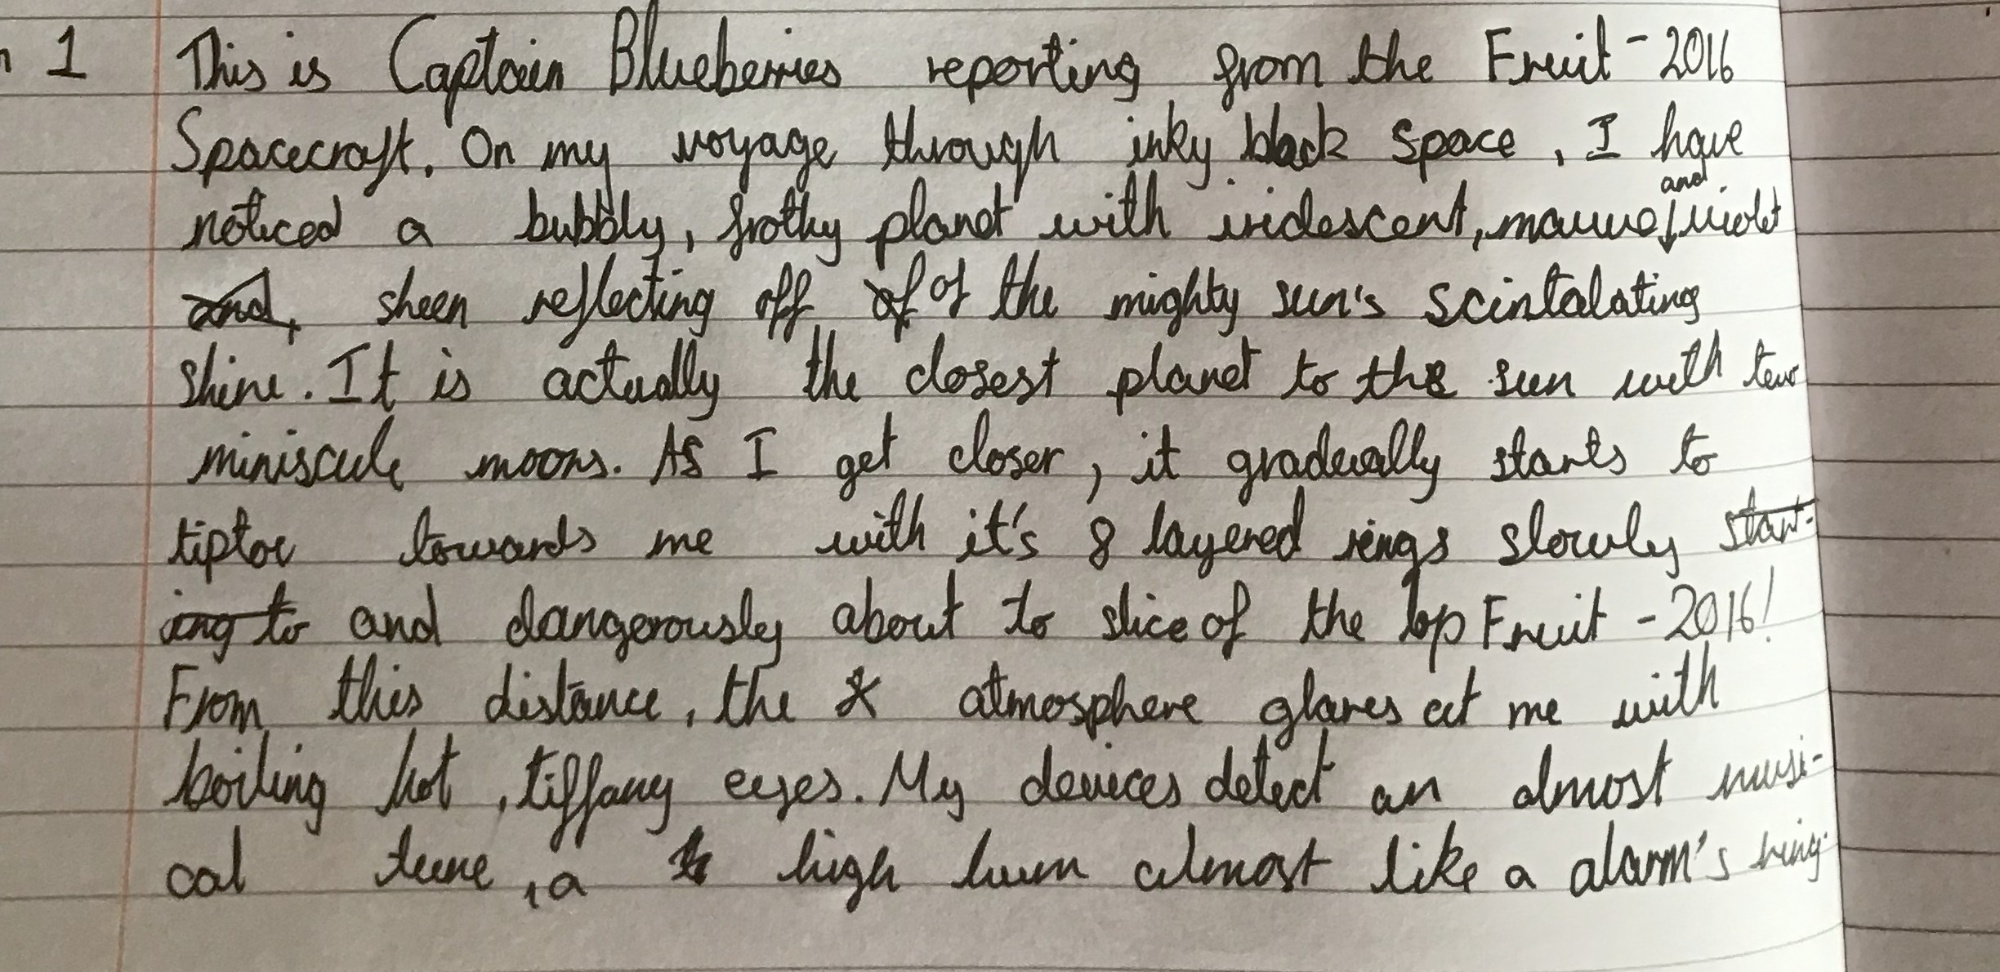 1 This is Captain Blueberries reporting from the Fruit-2016
Spacecraft. On my voyage through inky black space, I have
noticed a bubbly, frothy planet with iridescent, mauve and violet
and, sheen reflecting off of of the mighty sun's scintalating
shine. It is actually the closest planet to the sun with two
miniscule moons. As I get closer, it gradually starts to
tiptoe towards me with it's 8 layered rings slowly start-
ing to and dangerously about to slice of the top Fruit-2016!
From this distance, the atmosphere glares at me with
boiling hot, tiffany eyes. My devices detect an almost musi-
cal tune, a high hum almost like a alarm's ring